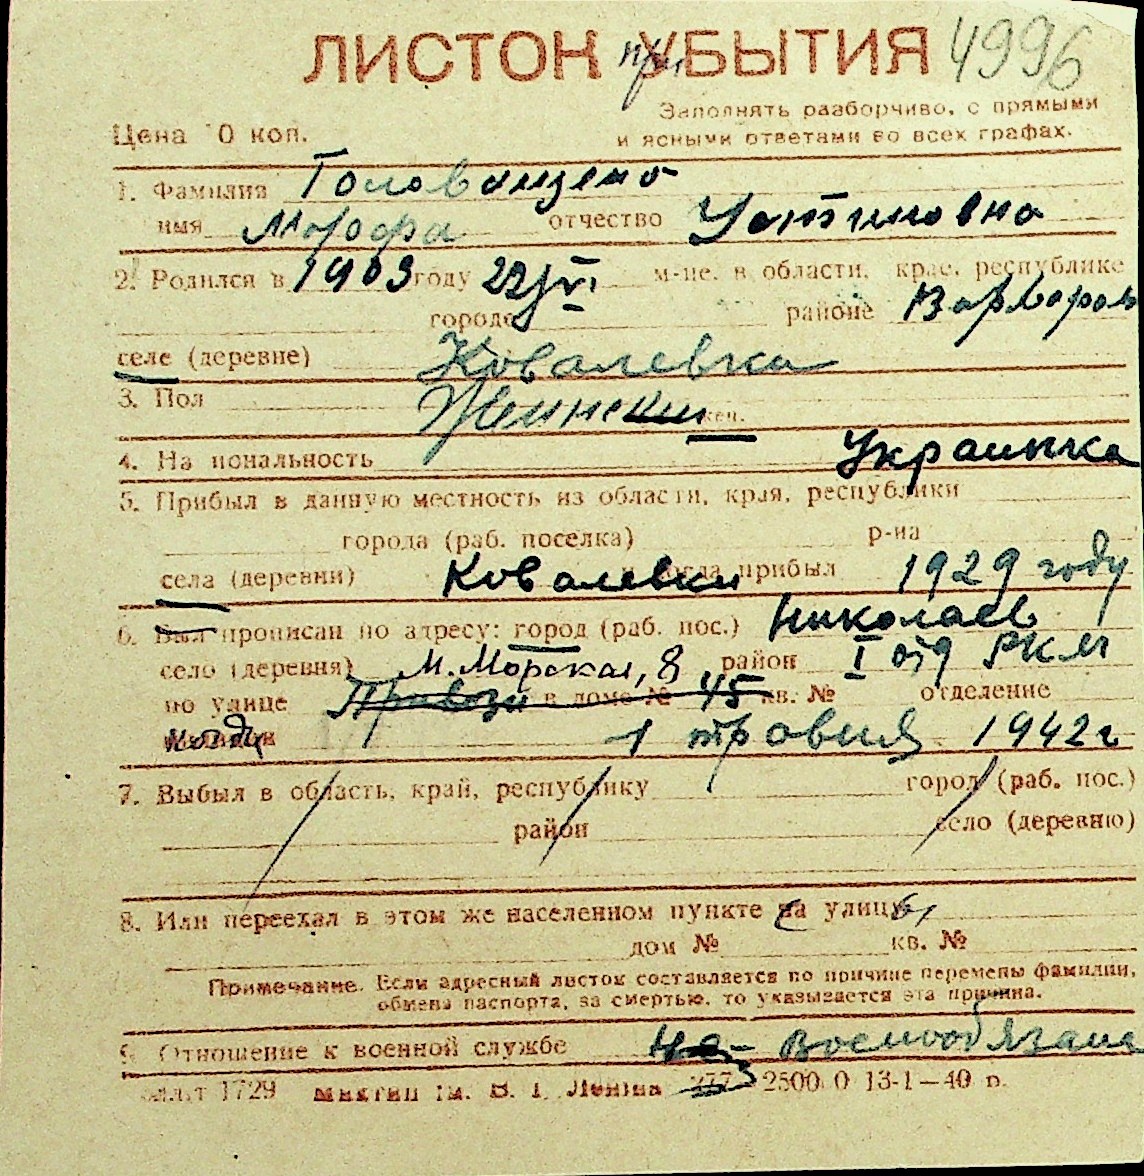 ЛИСТОК при УБЫТИЯ 4996
Заполнять разборчиво, с прямыми
Цена 0 коп. и ясными ответами во всех графах.
1. Фамилия Головащенко
имя Марфа отчество Устиновна
2. Родился в 1903 году 22/VI м-це. в области, крае, республике
городе районе Варваров
селе (деревне) Ковалевка
3. Пол Женский жен.
4. На иональность Украинка
5. Прибыл в данную местность из области, края, республики
города (раб. поселка) р-на
села (деревни) Ковалевки и когда прибыл 1929 году
6. Был прописан по адресу: город (раб. пос.) Николаев
село (деревня) М. Морская, 8 район I отд РКМ
по улице в доме № 45 кв. № отделение
1 травня 1942 г
7. Выбыл в область, край, республику город (раб. пос.)
район село (деревню)
8. Или переехал в этом же населенном пункте на улицу
дом № кв. №
Примечание. Если адресный листок составляется по причине перемены фамилии,
обмена паспорта, за смертью, то указывается эта причина.
9. Отношение к военной службе не- военообязана
1729 им. В. І. Леніна 2500 0 13-1—40 р.